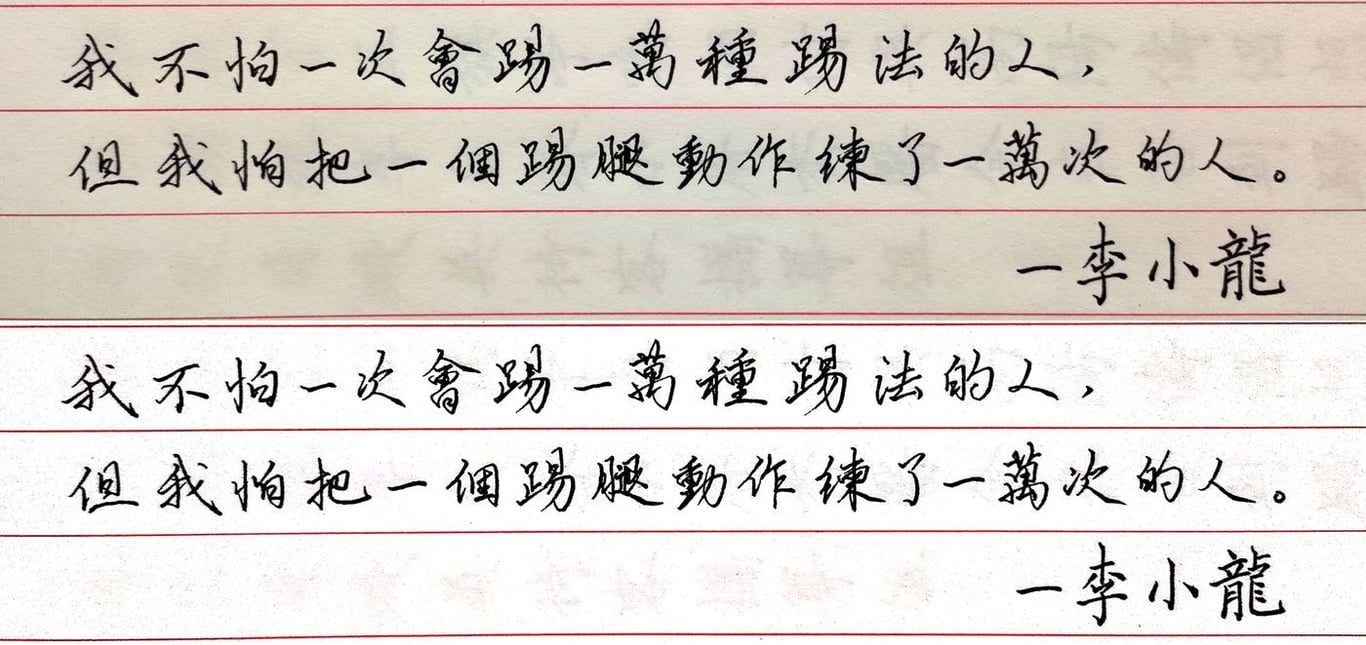 我不怕一次會踢一萬種踢法的人，
但我怕把一個踢腿動作練了一萬次的人。
—李小龍
我不怕一次會踢一萬種踢法的人，
但我怕把一個踢腿動作練了一萬次的人。
—李小龍